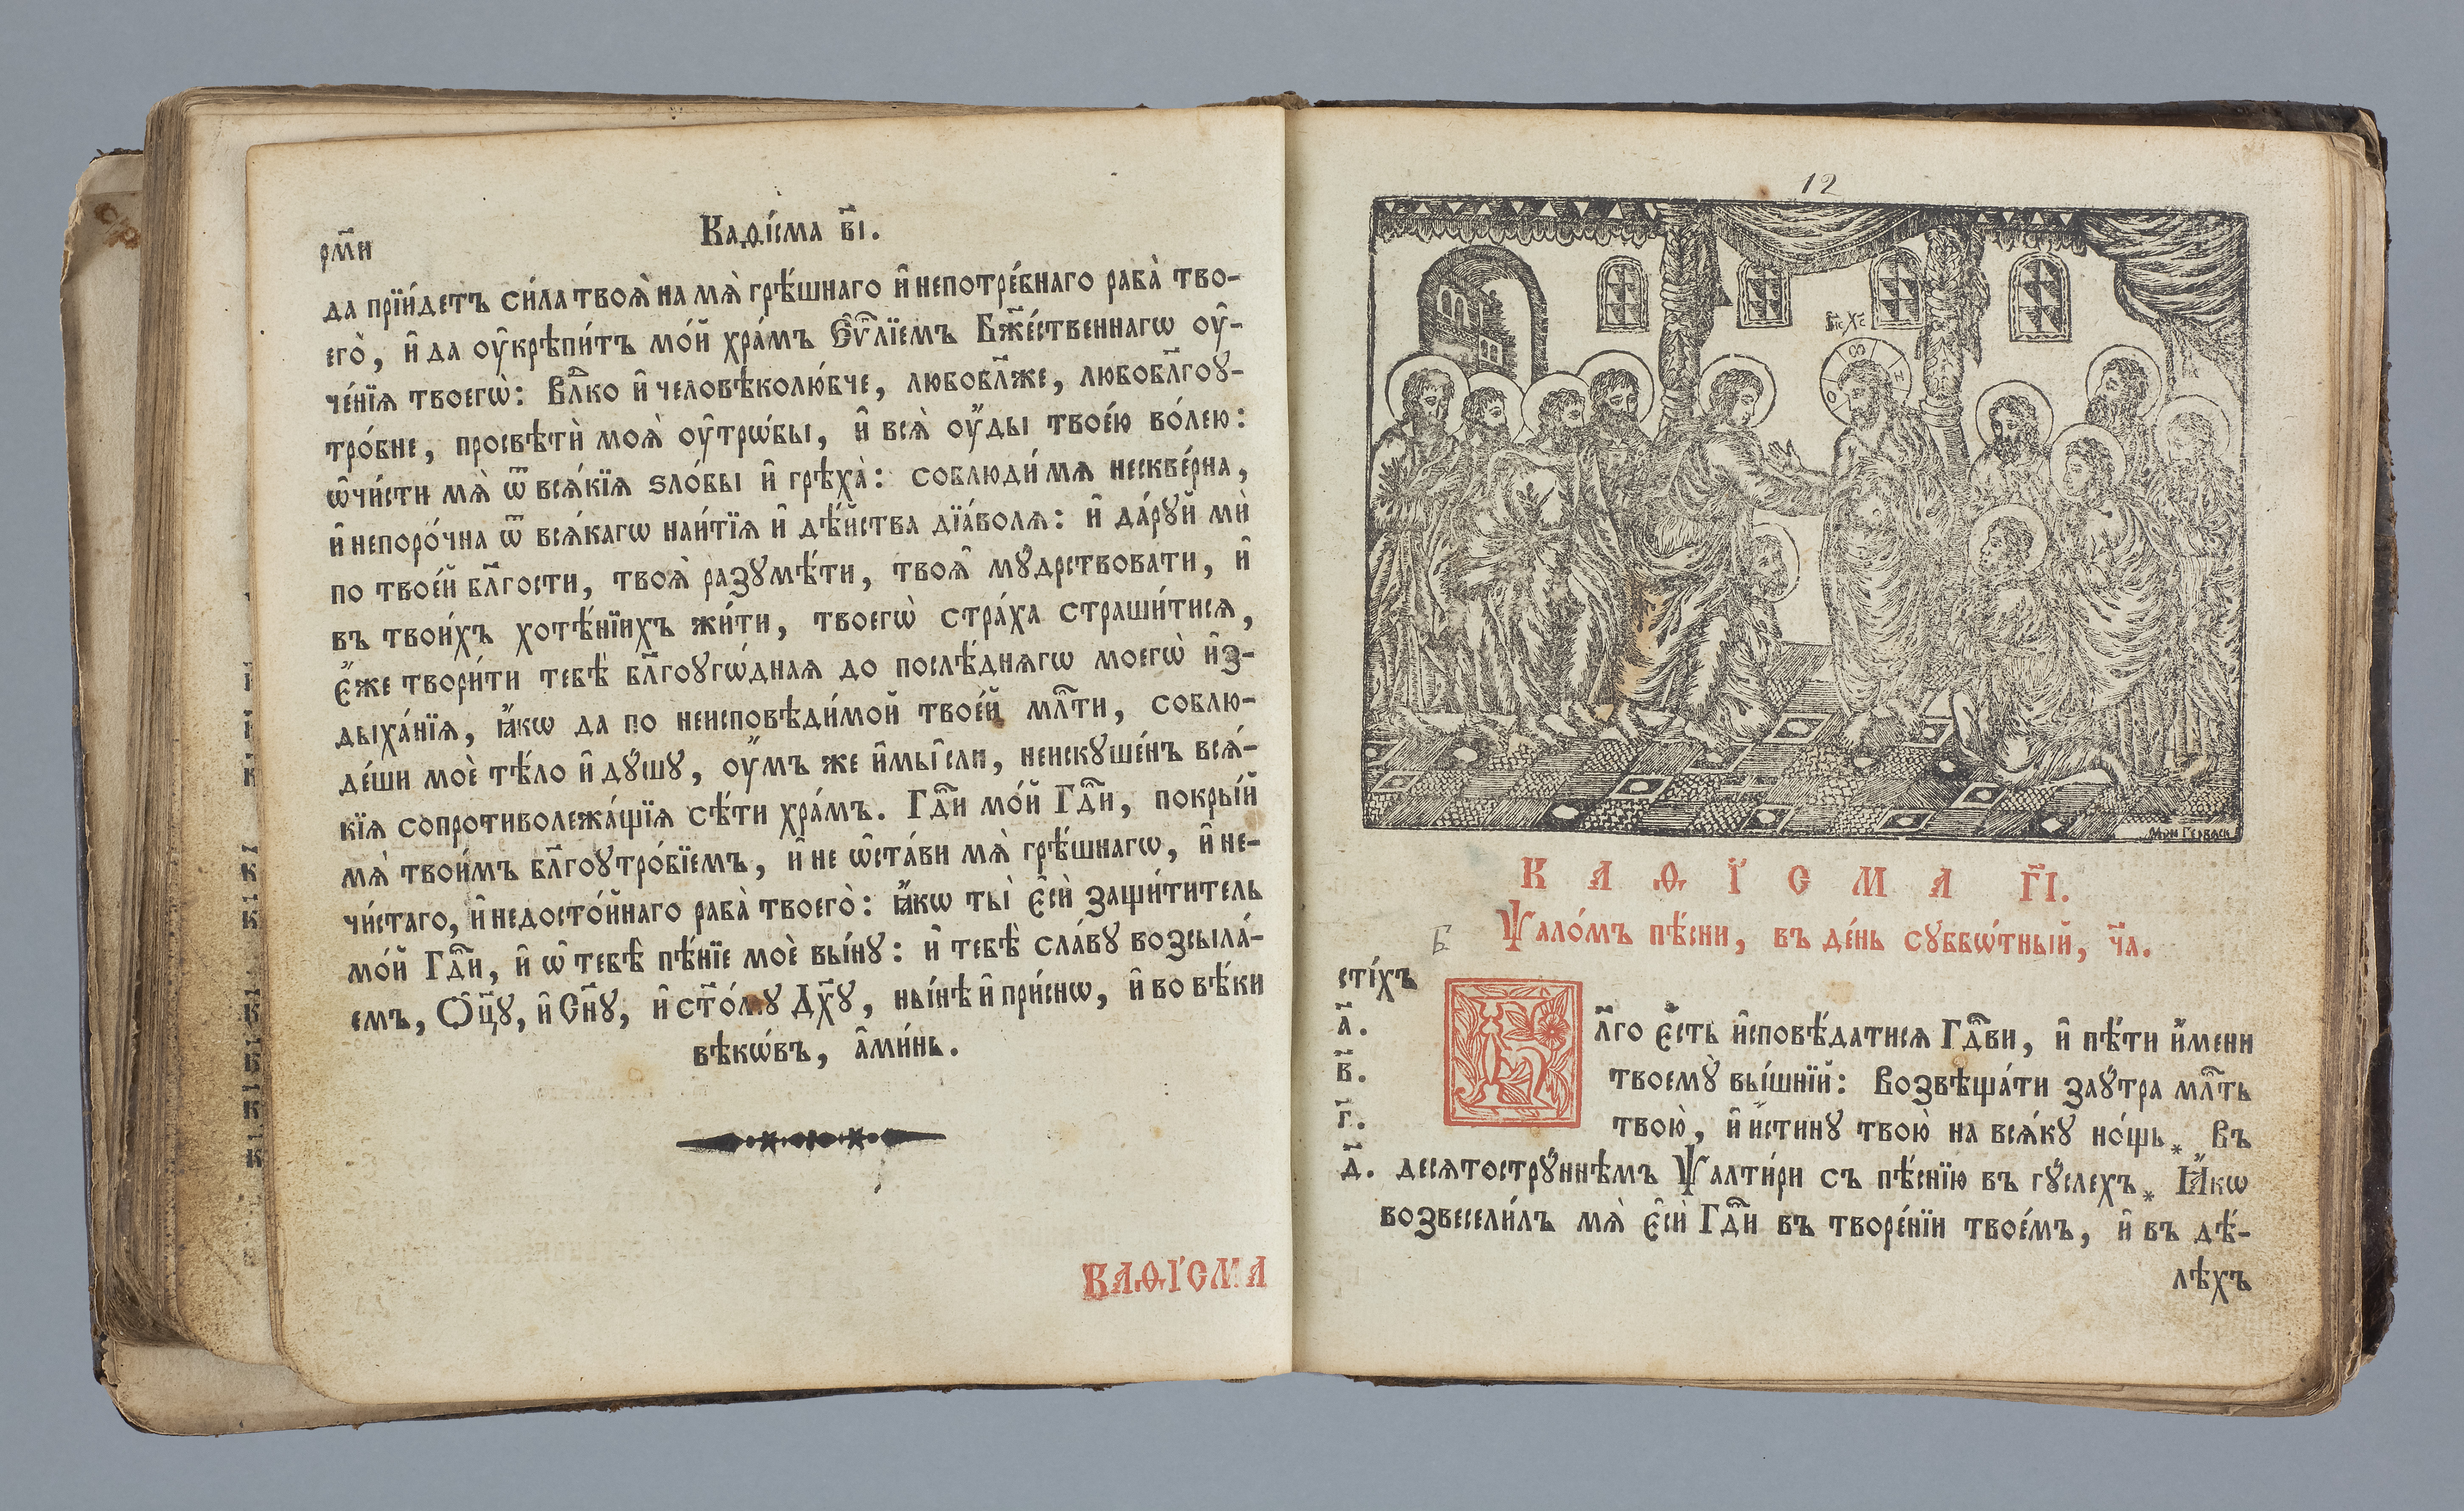 рм҃и
Каѳі́сма в҃і.
да прїи́детъ си́ла твоѧ̀ на мѧ̀ грѣ́шнаго и҆ непотре́бнаго раба̀ тво-
его̀, и҆ да оу҆крѣпи́тъ мо́й хра́мъ Є҆ѵ҃лїемъ Бж҃е́ственнагѡ оу҆-
че́нїѧ твоегѡ̀: Влⷣко и҆ человѣколю́бче, любобл҃же, любобл҃гоу-
тро́бне, просвѣтѝ моѧ̀ оу҆трѡ́бы, и҆ всѧ̀ оу҆́ды твое́ю во́лею:
ѡ҆чи́сти мѧ̀ ѿ всѧ́кїѧ ѕло́бы и҆ грѣха̀: соблюди́ мѧ нескве́рна,
и҆ непоро́чна ѿ всѧ́кагѡ наи́тїѧ и҆ дѣ́йства дїа́волѧ: и҆ да́руй мѝ
по твое́й бл҃гости, твоѧ̀ разꙋмѣ́ти, твоѧ̑ мꙋ́дрствовати, и҆
въ твои́хъ хотѣ́нїихъ жи́ти, твоегѡ̀ стра́ха страши́тисѧ,
є҆́же твори́ти тебѣ̀ бл҃гоꙋгѡ́днаѧ до послѣ́днѧгѡ моегѡ̀ и҆з-
дыха́нїѧ, ꙗ҆́кѡ да по неисповѣди́мой твое́й млⷭ҇ти, соблю-
де́ши моѐ тѣ́ло и҆ дꙋ́шꙋ, оу҆́мъ же и҆ мы̑сли, неискꙋше́нъ всѧ́-
кїѧ сопротиволежа́щїѧ сѣ́ти хра́мъ. Гдⷭ҇и мо́й Гдⷭ҇и, покры́й
мѧ̀ твои́мъ бл҃гоꙋтро́бїемъ, и҆ не ѡ҆ста́ви мѧ̀ грѣ́шнагѡ, и҆ не-
чи́стаго, и҆ недосто́йнаго раба̀ твоего̀: ꙗ҆́кѡ ты̀ є҆сѝ защи́титель
мо́й Гдⷭ҇и, и҆ ѡ҆ тебѣ̀ пѣ́нїе моѐ вы́нꙋ: и҆ тебѣ̀ сла́вꙋ возсыла́-
емъ, Ѻ҆ц҃ꙋ, и҆ Сн҃ꙋ, и҆ ст҃о́мꙋ Дх҃ꙋ, ны́нѣ и҆ при́снѡ, и҆ во вѣ́ки
вѣкѡ́въ, а҆ми́нь.
КАѲІ́СМА
12
І҃с Х҃с
Мон Герваси
КАѲІ́СМА г҃і.
Б
Ѱало́мъ пѣ́сни, въ де́нь сꙋббѡ́тный, ч҃а.
сті́хъ
а҃.
в҃.
г҃.
д҃.
Бл҃го є҆́сть и҆сповѣ́датисѧ Гдⷭ҇ви, и҆ пѣ́ти и҆́мени
твоемꙋ̀ вы́шнїй: Возвѣща́ти заꙋ́тра млⷭ҇ть
твою̀, и҆ и҆́стинꙋ твою̀ на всѧ́кꙋ но́щь* Въ
десѧтострꙋ́ннѣмъ Ѱалти́ри съ пѣ́снїю въ гꙋ́слехъ* Ꙗ҆́кѡ
возвесели́лъ мѧ̀ є҆сѝ Гдⷭ҇и въ творе́нїи твое́мъ, и҆ въ дѣ́-
лѣхъ